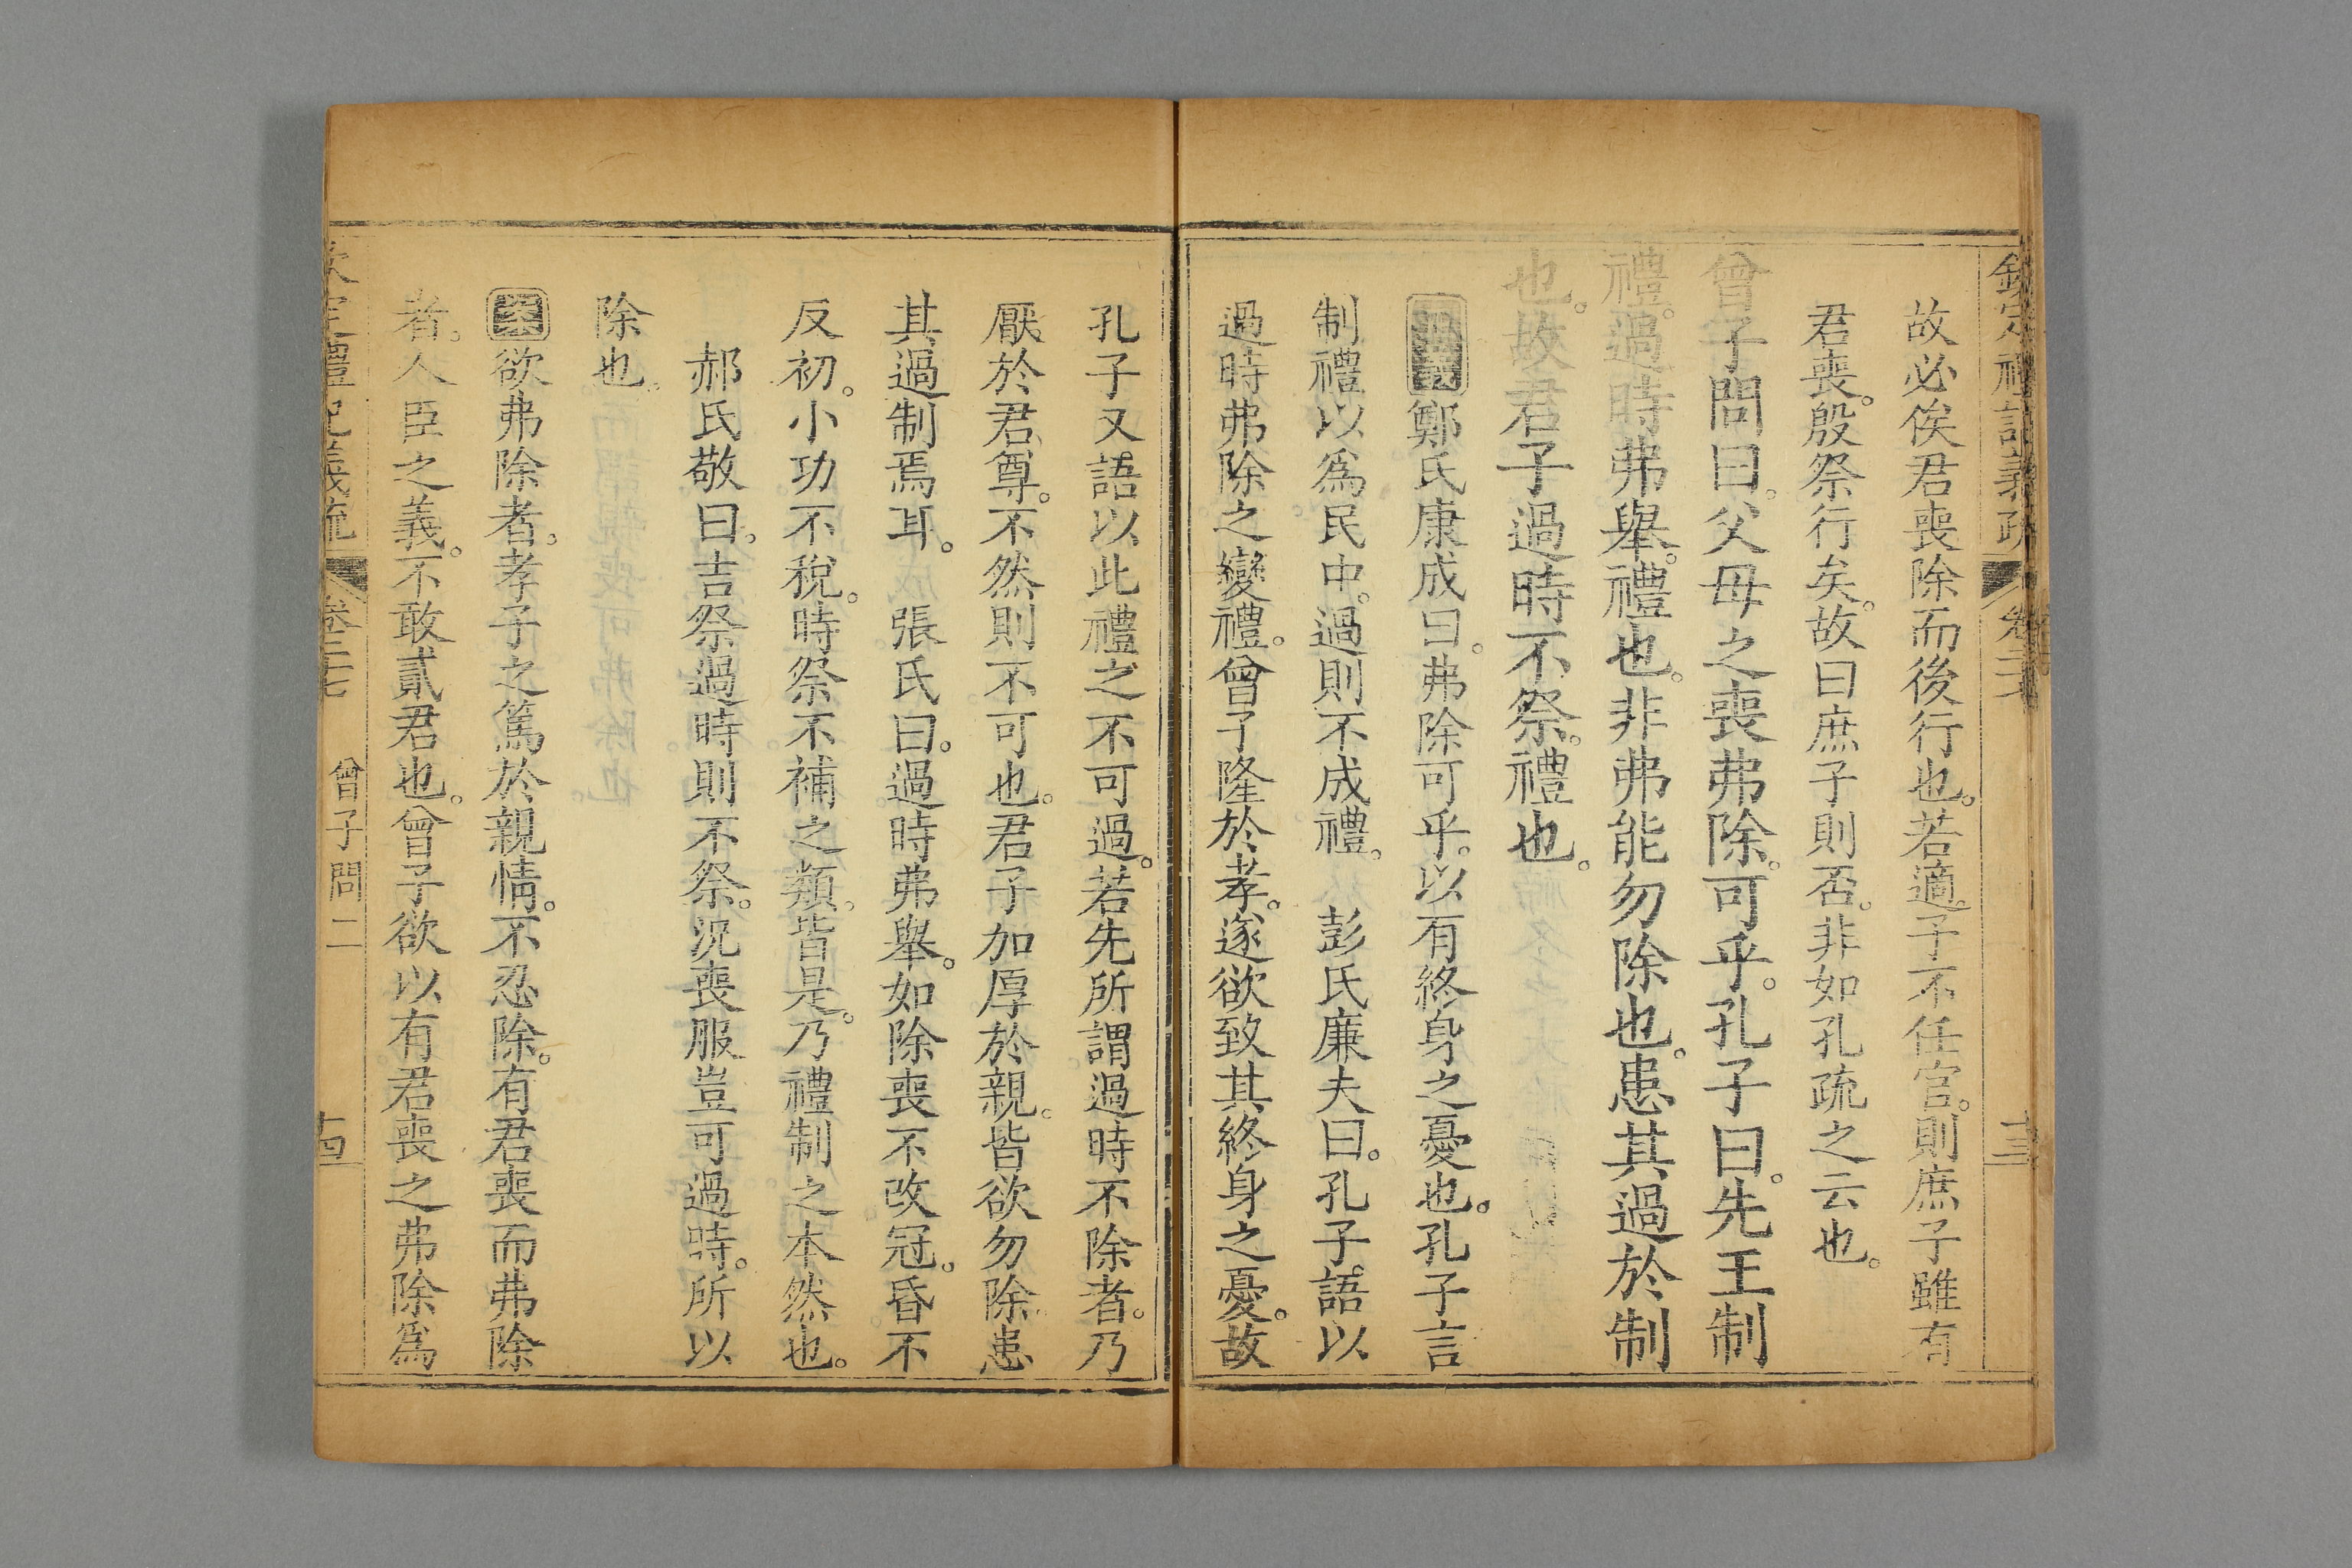 欽定禮記義疏 卷二十七 十三
故必俟君喪除而後行也。若適子不任官。則庶子雖有
君喪。殷祭行矣。故曰庶子則否。非如孔疏之云也。
曾子問曰。父母之喪弗除。可乎。孔子曰。先王制
禮。過時弗舉。禮也。非弗能勿除也。患其過於制
也。故君子過時不祭。禮也。
鄭氏康成曰。弗除可乎。以有終身之憂也。孔子言
制禮以爲民中。過則不成禮。 彭氏廉夫曰。孔子語以
過時弗除之變禮。曾子隆於孝。遂欲致其終身之憂。故
孔子又語以此禮之不可過。若先所謂過時不除者。乃
厭於君尊。不然則不可也。君子加厚於親。皆欲勿除。患
其過制焉耳。 張氏曰。過時弗舉。如除喪不改冠。昏不
反初。小功不稅。時祭不補之類。皆是。乃禮制之本然也。
郝氏敬曰。吉祭過時則不祭。況喪服豈可過時。所以
除也。
欲弗除者。孝子之篤於親情。不忍除。有君喪而弗除
者。人臣之義。不敢貳君也。曾子欲以有君喪之弗除爲
欽定禮記義疏 卷二十七 曾子問二 十四